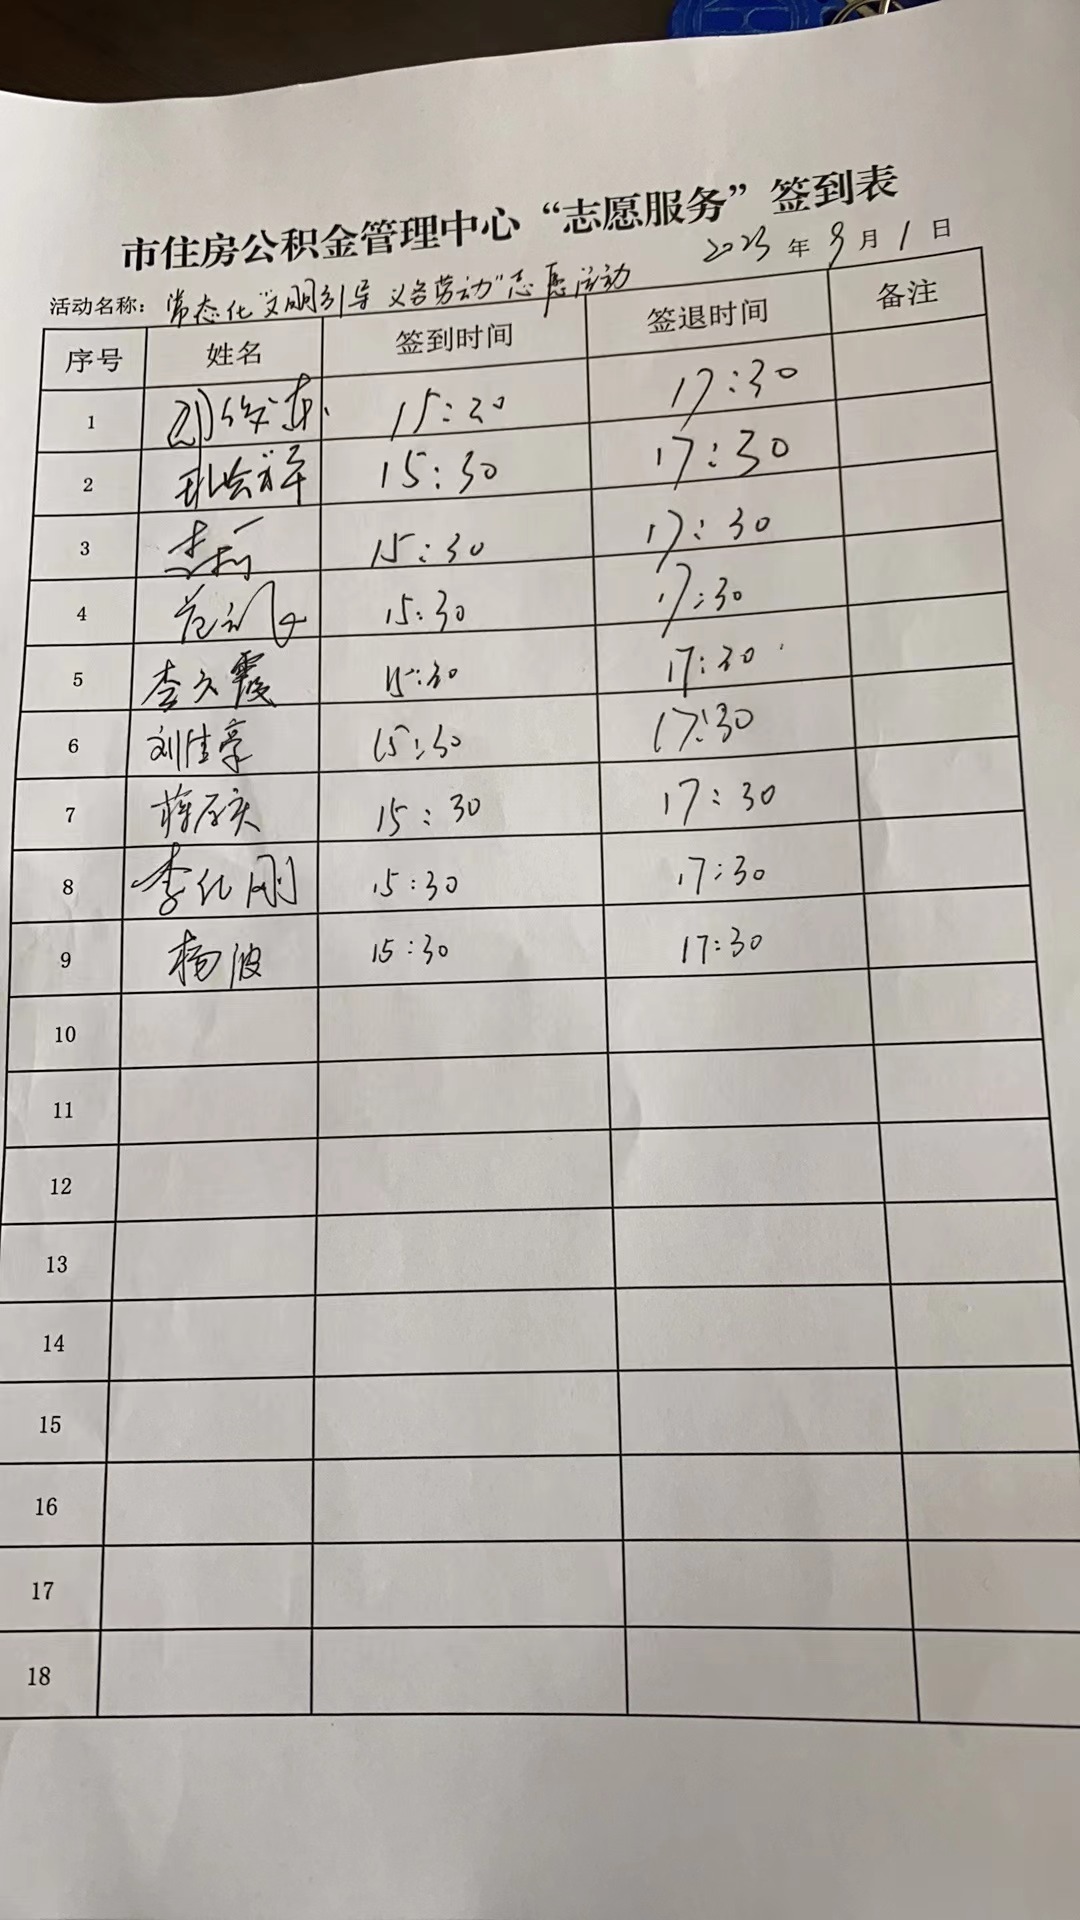 市住房公积金管理中心“志愿服务”签到表
2023年9月1日
活动名称：常态化“文明引导 义务劳动”志愿活动
序号 姓名 签到时间 签退时间 备注
1 15:30 17:30
2 15:30 17:30
3 15:30 17:30
4 15:30 17:30
5 李文霞 15:30 17:30
6 刘佳豪 15:30 17:30
7 15:30 17:30
8 李化刚 15:30 17:30
9 杨波 15:30 17:30
10
11
12
13
14
15
16
17
18